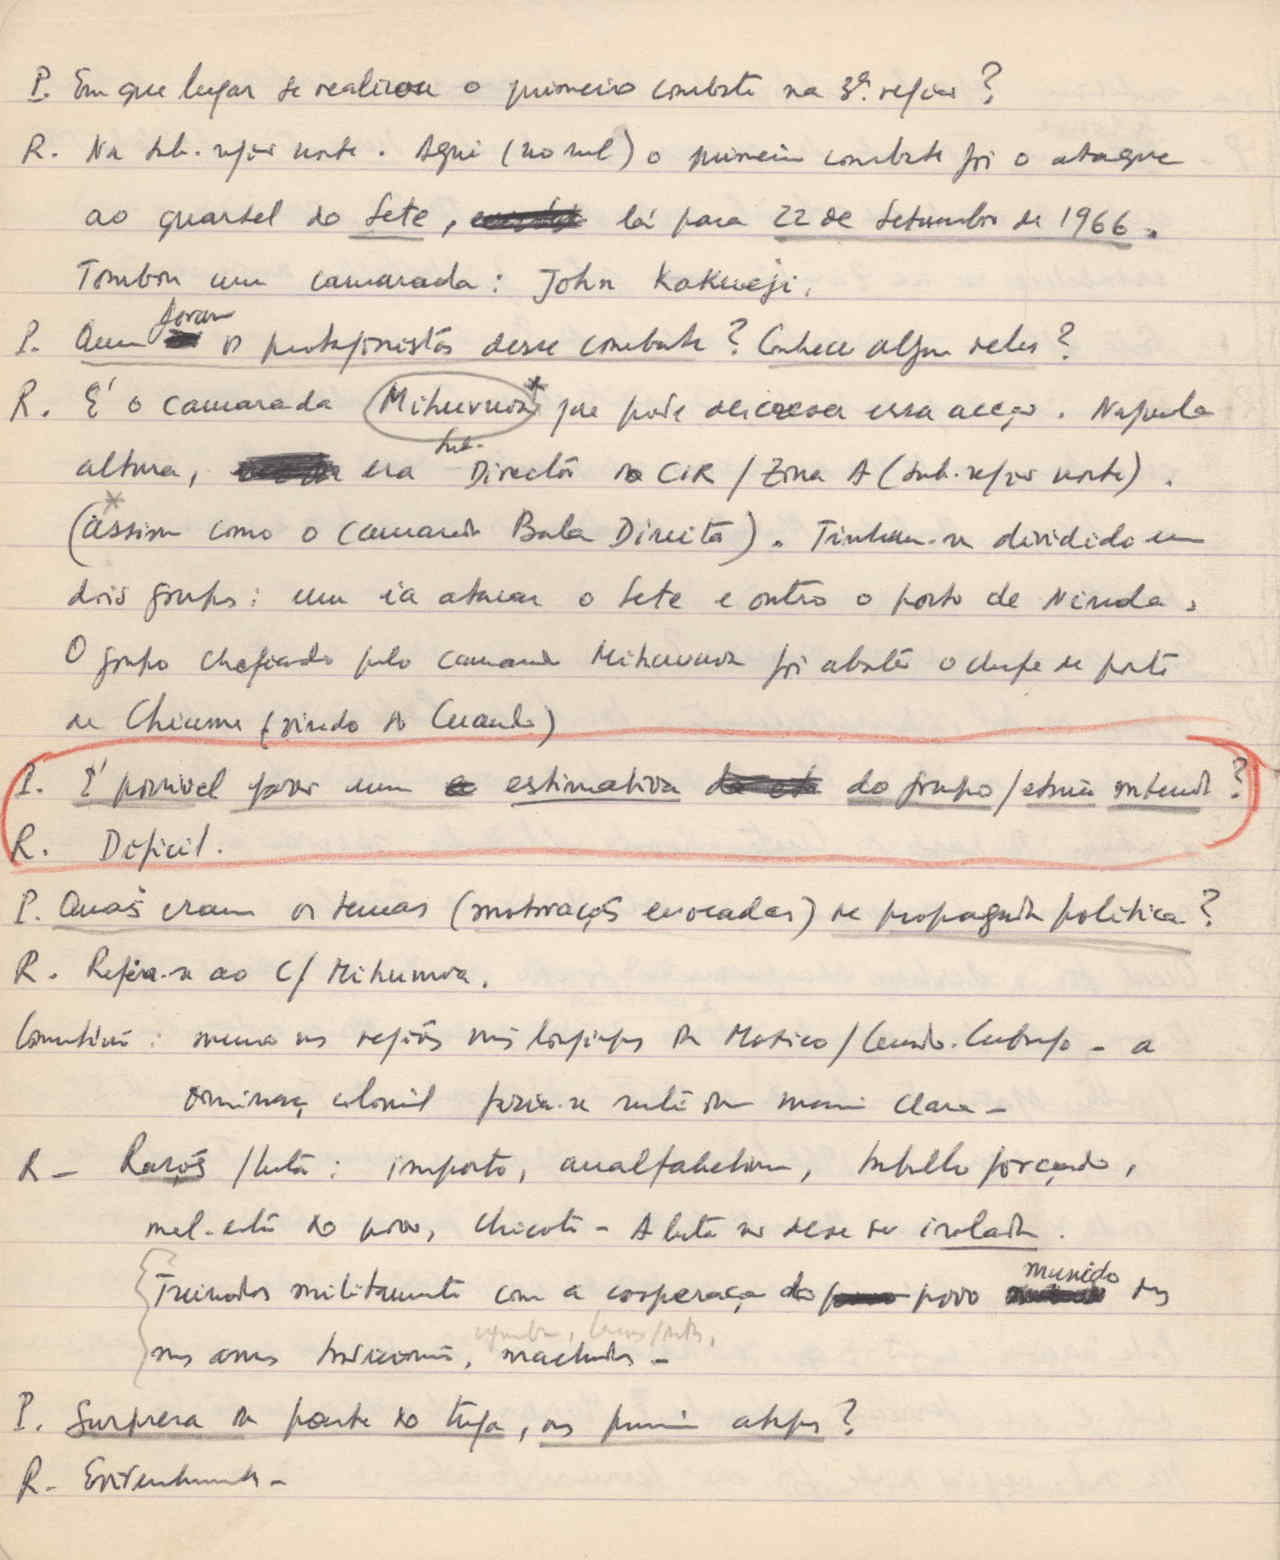 P. Em que lugar se realizou o primeiro combate na 3ª. região?
R. Na sub-região norte. Aqui (no sul) o primeiro combate foi o ataque
ao quartel do Sete, lá para 22 de Setembro de 1966.
Tombou um camarada: John Kakweji.
P. Quem foram os protagonistas desse combate? Conhece algum deles?
R. É o camarada Mihumvua* que pode descrever essa acção. Naquela
altura, era sub-Director do CIR / Zona A (sub-região norte).
*(assim como o camarada Bala Direita). Tinham-se dividido em
dois grupos: um ia atacar o Sete e outro o posto de Ninda.
O grupo chefiado pelo camarada foi abater o chefe de posto
de Chiume (vindo do Cuando)
P. É possivel fazer uma estimativa do grupo/etnia?
R. Dificil.
P. Quais eram os temas (motivações evocadas) de propaganda politica?
R. Refira-se ao C/
mesmo nas regiões mais longinquas do Moxico/Cuando-Cubango - a
dominação colonial fazia-se sentir de maneira clara -
R - Razões/luta: imposto, analfabetismo, trabalho forçado,
mal-estar do povo, chicote - A luta não deve ser isolada.
Treinados militarmente com a cooperação do povo munido das
suas armas tradicionais, machados -
P. Surpresa da parte do tuga, nos primeiros ataques?
R - Evidentemente -